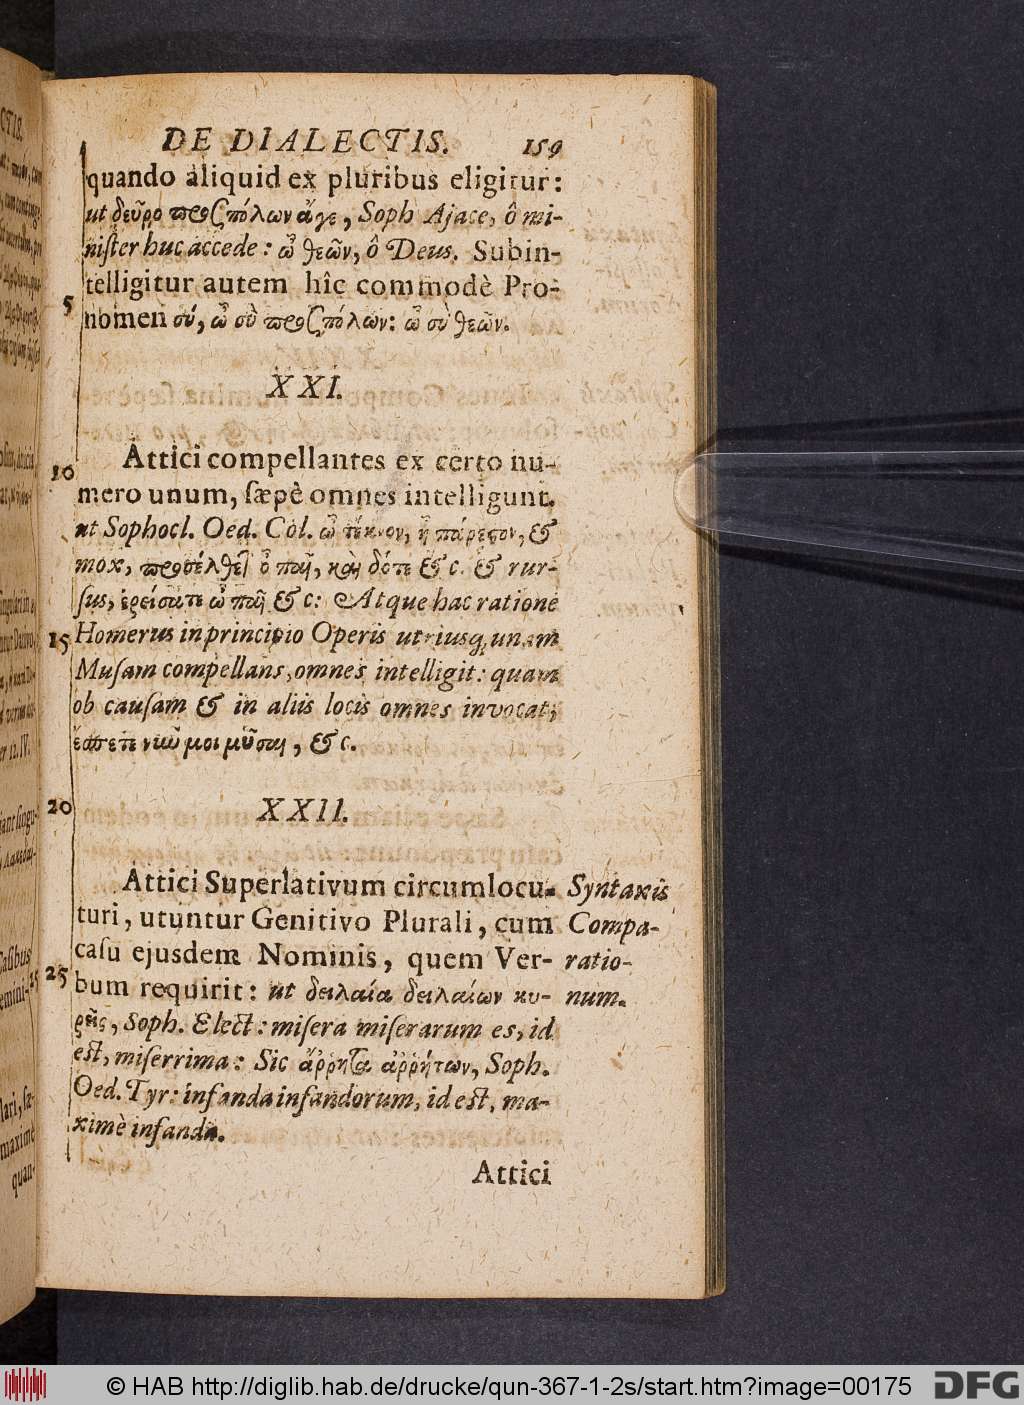 DE DIALECTIS. 159
quando aliquid ex pluribus eligitur:
ut δεῦρο προσπόλων ἄγε, Soph Ajace, ô mi-
niſter huc accede: ὦ θεῶν, ô Deus. Subin-
telligitur autem hîc commodè Pro-
5
nomen σύ, ὦ σὺ προσπόλων: ὦ σὺ θεῶν.
XXI.
Attici compellantes ex certo nu-
10
mero unum, ſæpè omnes intelligunt.
ut Sophocl. Oed. Col. ὦ τέκνον, ἦ πάρεστον, &
mox, προσέλθετ᾽ ὦ παῖ, καὶ δότε & c. & rur-
ſus, ἐρείσατε ὦ παῖ & c: Atque hac ratione
15
Homerus in principio Operis utriusq, unam
Muſam compellans, omnes intelligit: quam
ob cauſam & in aliis locis omnes invocat;
ἔσπετε νῦν μοι μοῦσαι, & c.
20
XXII.
Attici Superlativum circumlocu-
turi, utuntur Genitivo Plurali, cum
caſu ejusdem Nominis, quem Ver-
25
bum requirit: ut δειλαία δειλαίων κυ-
ρεῖς, Soph. Elect: miſera miſerarum es, id
eſt, miſerrima: Sic ἄῤῥητα ἀῤῥήτων, Soph.
Oed. Tyr: infanda infandorum, id eſt, ma-
ximè infanda.
Syntaxis
Compa-
ratio-
num.
Attici
© HAB http://diglib.hab.de/drucke/qun-367-1-2s/start.htm?image=00175
DFG